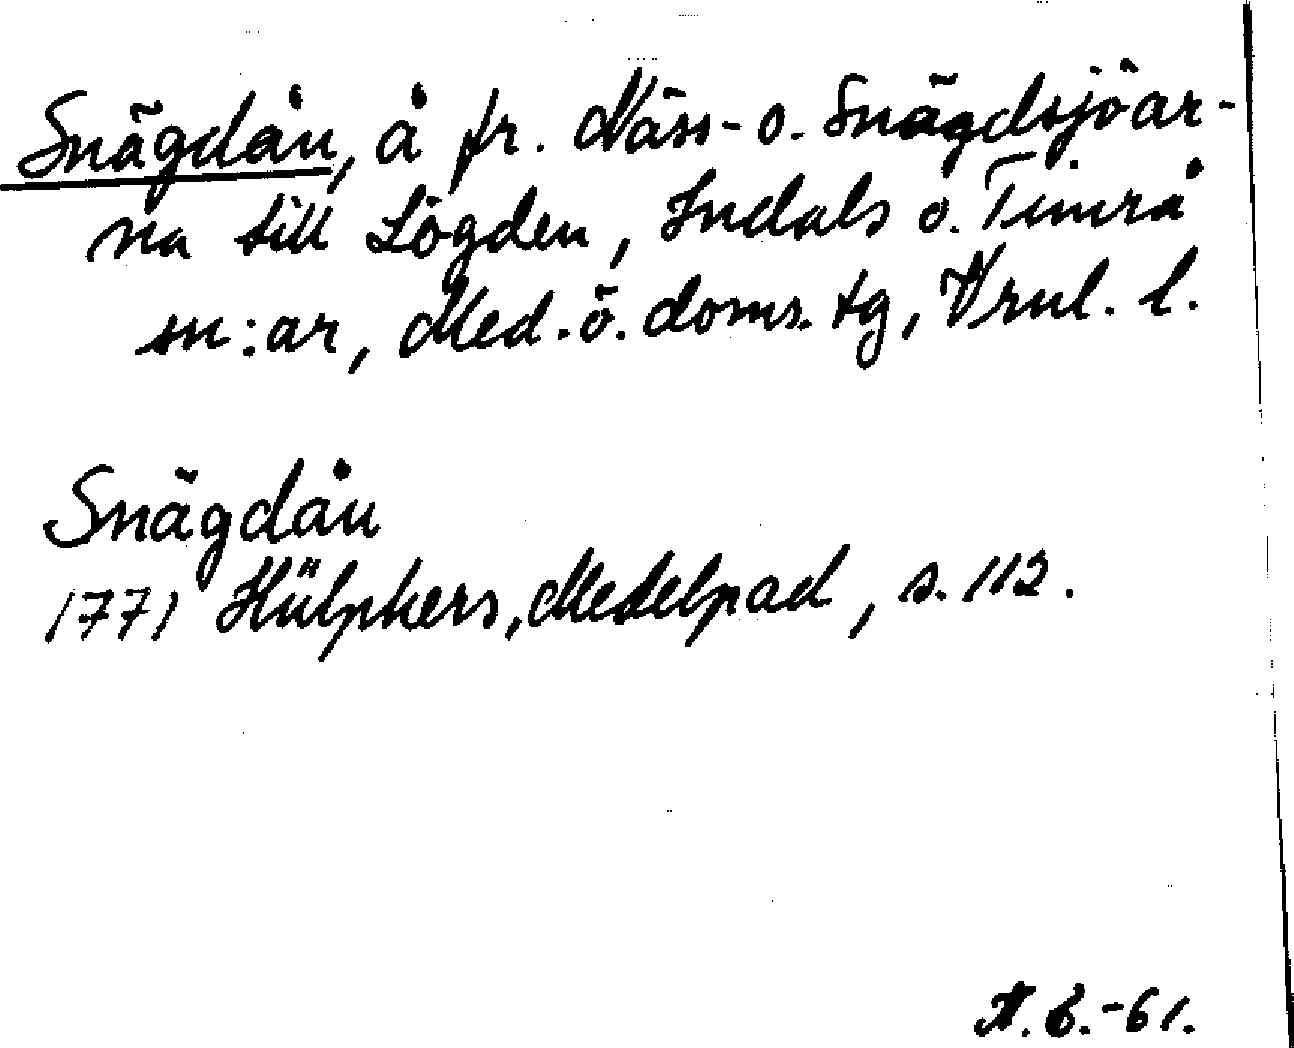 Snägdån, å fr. Näss- o. Snägdsjöar-
na till Lögden, Indals o. Timrå
sn:ar, Med. ö. doms. tg, Vrnl. l.
Snägdån
1771 Hülphers, Medelpad, s. 112.
A. B. -61.